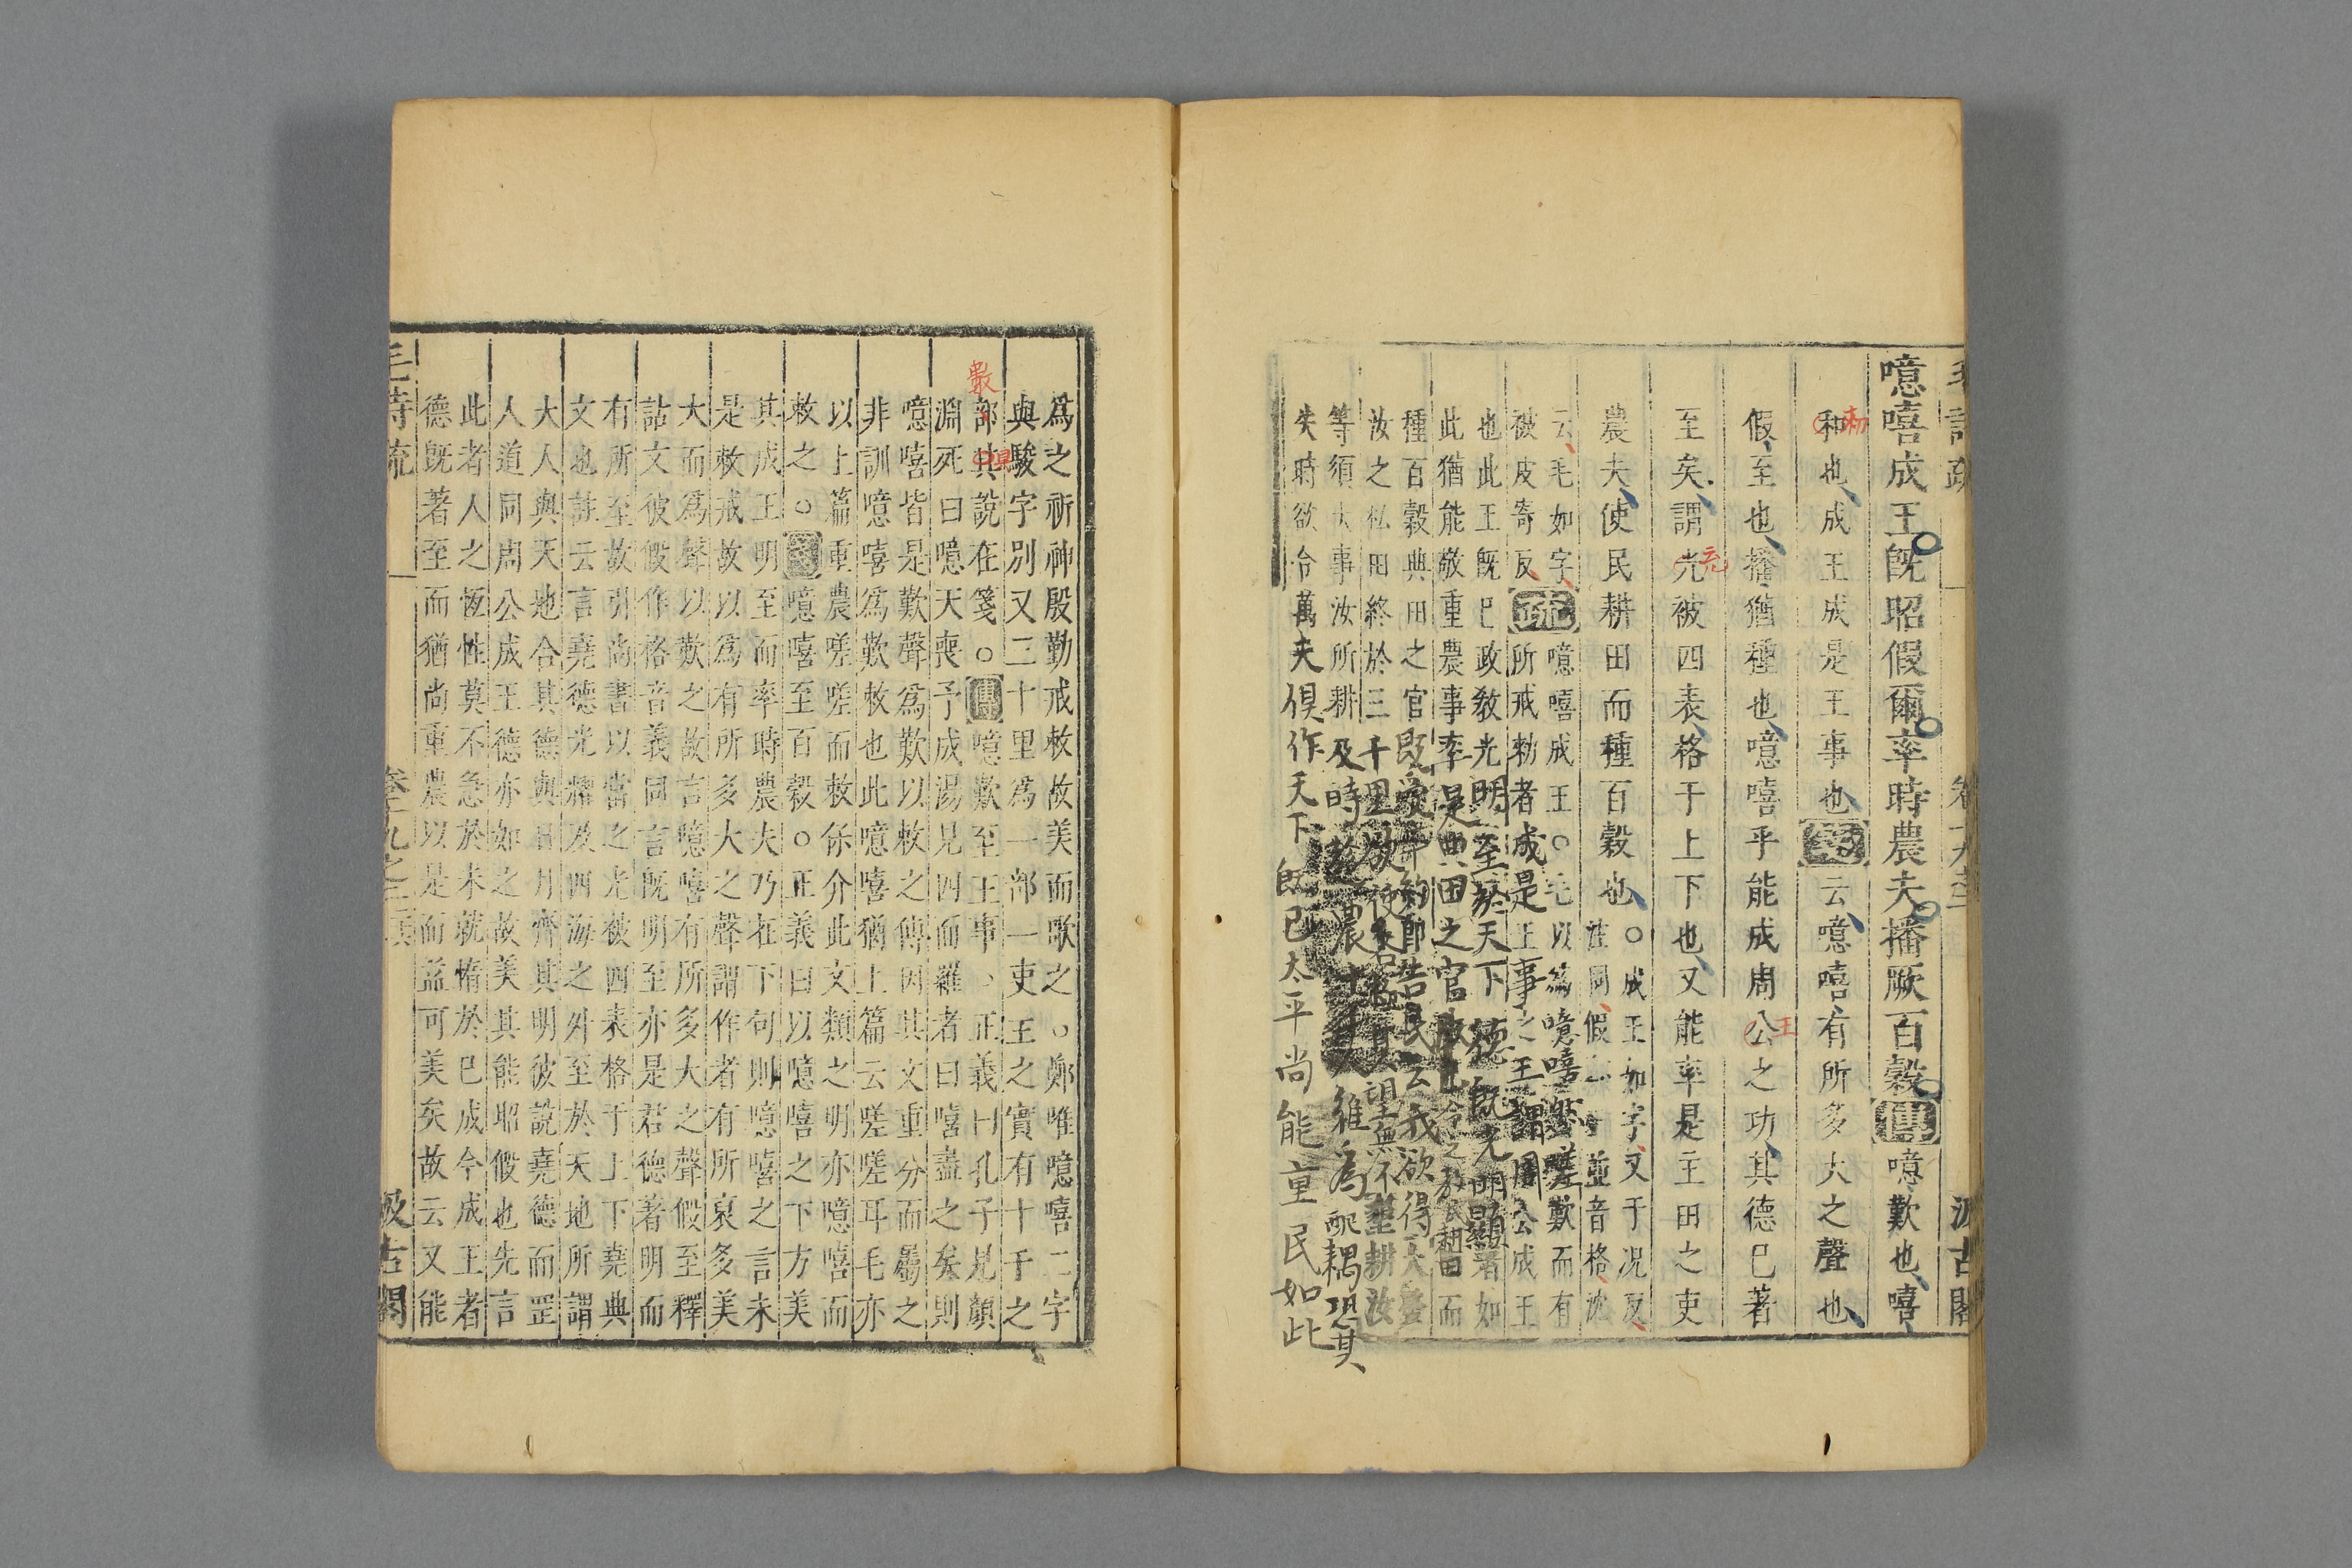 噫嘻成王既昭假爾率時農夫播厥百穀傳噫歎也嘻
勑
和也成王成是王事也箋云噫嘻有所多大之聲也
假至也播猶種也噫嘻乎能成周公之功其德已著
王
至矣謂光被四表格于上下也又能率是主田之吏
農夫使民耕田而種百穀也○成王如字又于况反
注同假
並音格沈
云毛如字疏噫嘻成王○毛以為噫嘻嗟歎而有
被皮寄反所戒勑者成是王事之王謂周公成王
也此王既巳政教光明至於天下德既光明顯著如
此猶能敬重農事率是典田之官令之教民耕田而
種百穀典田之官既受約即告民云我欲得大發
汝之私田終於三十里欲使望無不墾耕汝
等須大事汝所耕及時於農維為配耦恐其
失時欲令萬夫俱作天下既已太平尚能重民如此
為之祈神殷勤戒敕故美而歌之○鄭唯噫嘻二字
與駿字別又三十里為一部一吏主之實有十千之
部其說在箋○傳噫歎至王事○正義曰孔子見顏
淵死曰噫天喪予成湯見四面羅者曰嘻盡之矣則
噫嘻皆是歎聲為歎以敕之傳因其文重分而屬之
非訓噫嘻為歎敕也此噫嘻猶上篇云嗟嗟耳毛亦
以上篇重農嗟嗟而敕保介此文類之明亦噫嘻而
敕之○箋噫嘻至百穀○正義曰以噫嘻之下方美
其成王明至而率時農夫乃在下句則噫嘻之言未
是敕戒故以為有所多大之聲謂作者有所裒多美
大而為聲以歎之故言噫嘻有所多大之聲假至釋
詁文彼假作格音義同言既明至亦是君德著明而
有所至故引尚書以當之光被四表格于上下堯典
文也註云言堯德光耀及四海之外至於天地所謂
大人與天地合其德與日月齊其明彼說堯德而罡
人道同周公成王德亦如之故美其能昭假也先言
此者人之恆性莫不急於未就惰於已成今成王者
德既著至而猶尚重農以是而益可美矣故云又能
毛詩疏
卷十九之二
汲古閣